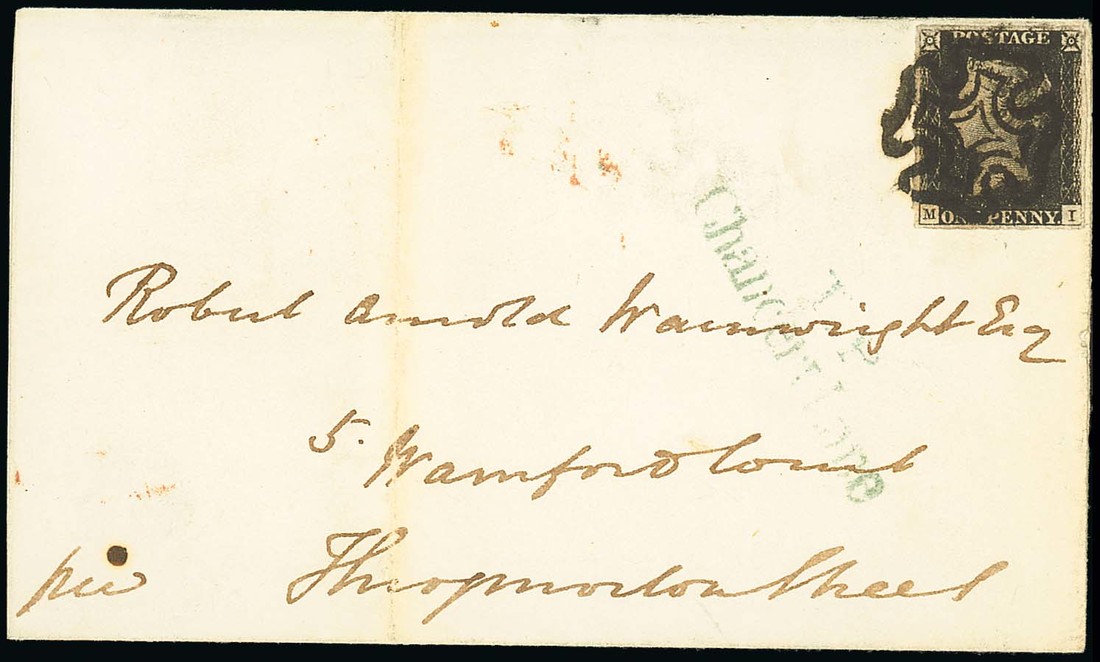 POSTAGE
M ONE PENNY I
Chancery Lane
Robert Arnold Wainwright Esq
5. Warnford Court
Throgmorton Street